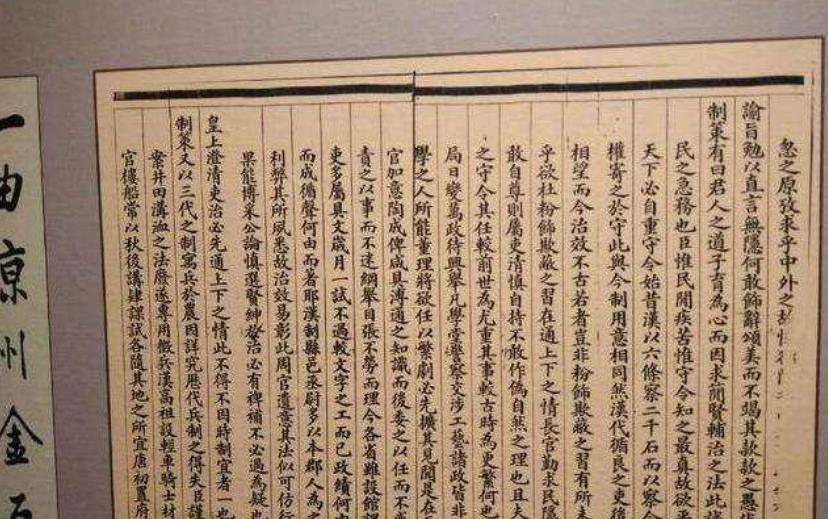 忽之原攷求乎中外之故
諭旨勉以直言無隱何敢飾辭頌美而不竭其款款之愚
制策有曰君人之道子育為心而因求前賢輔治之法此
民之急務也臣惟民間疾苦惟守令知之最真故欲
天下必自重守令始昔漢以六條察二千石而以察令
權寄之於守此與今制用意相同然漢代循良之吏後
相望而今治效不古若者豈非粉飾欺蔽之習有所未
乎欲杜粉飾欺蔽之習在通上下之情長官勤求民隱
敢自尊則屬吏清慎自持不敢作偽自然之理也且夫
之守令其任較前世為尤重其事較古時為更繁何也
局日變萬政待興舉凡學堂警察交涉工藝諸政皆非
學之人所能董理將欲任以繁劇必先擴其見聞是在
官加意陶成俾咸具溥通之知識而後委之以任而不
責之以事而不迷綱舉目張不勞而理今各省雖設館課
吏多屬具文歲月一試不過較文字之工而已政績何
而成循聲何由而著耶漢制縣邑丞尉多以本郡人為之
利弊其所夙悉故治效易彰此周官遺意其法似可仿行
果能博采公論慎選賢紳於治必有裨補不必過為疑也
皇上澄清吏治必先通上下之情此不得不因時制宜者一也
制策又以三代之制寓兵於農因詳究歷代兵制之得失臣謹
案井田溝洫之法廢遂專用徵兵漢高祖設輕車騎士材
官樓船常以秋後講肄課試各隨其地之所宜唐初置府
一由涼州金